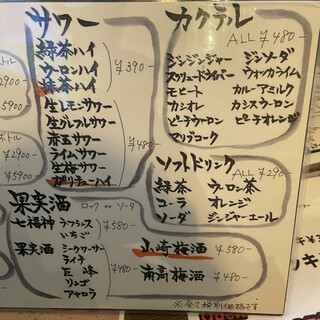 サワー
緑茶ハイ
ウーロンハイ
抹茶ハイ
¥390-
生レモンサワー
生グレフルサワー
赤玉サワー
ライムサワー
生梅サワー
ガリチューハイ
¥480-
カクテル
ALL ¥480-
ジンジンジャー ジンソーダ
スクリュードライバー ウォッカライム
モヒート カルーアミルク
カシオレ カシスウーロン
ピーチウーロン ピーチオレンジ
マリブコーク
ソフトドリンク
ALL ¥290-
緑茶 ウーロン茶
コーラ オレンジ
ソーダ ジンジャーエール
果実酒 ロック or ソーダ
七福神 ラフランス
いちご
¥580-
果実酒 シークワーサー
ライチ
巨峰
リンゴ
アセロラ
¥480-
山崎梅酒 ¥580-
南高梅酒 ¥480-
※全て税別価格です
ボトル
2900-
5900-
ボトル
¥2900-
¥5900-